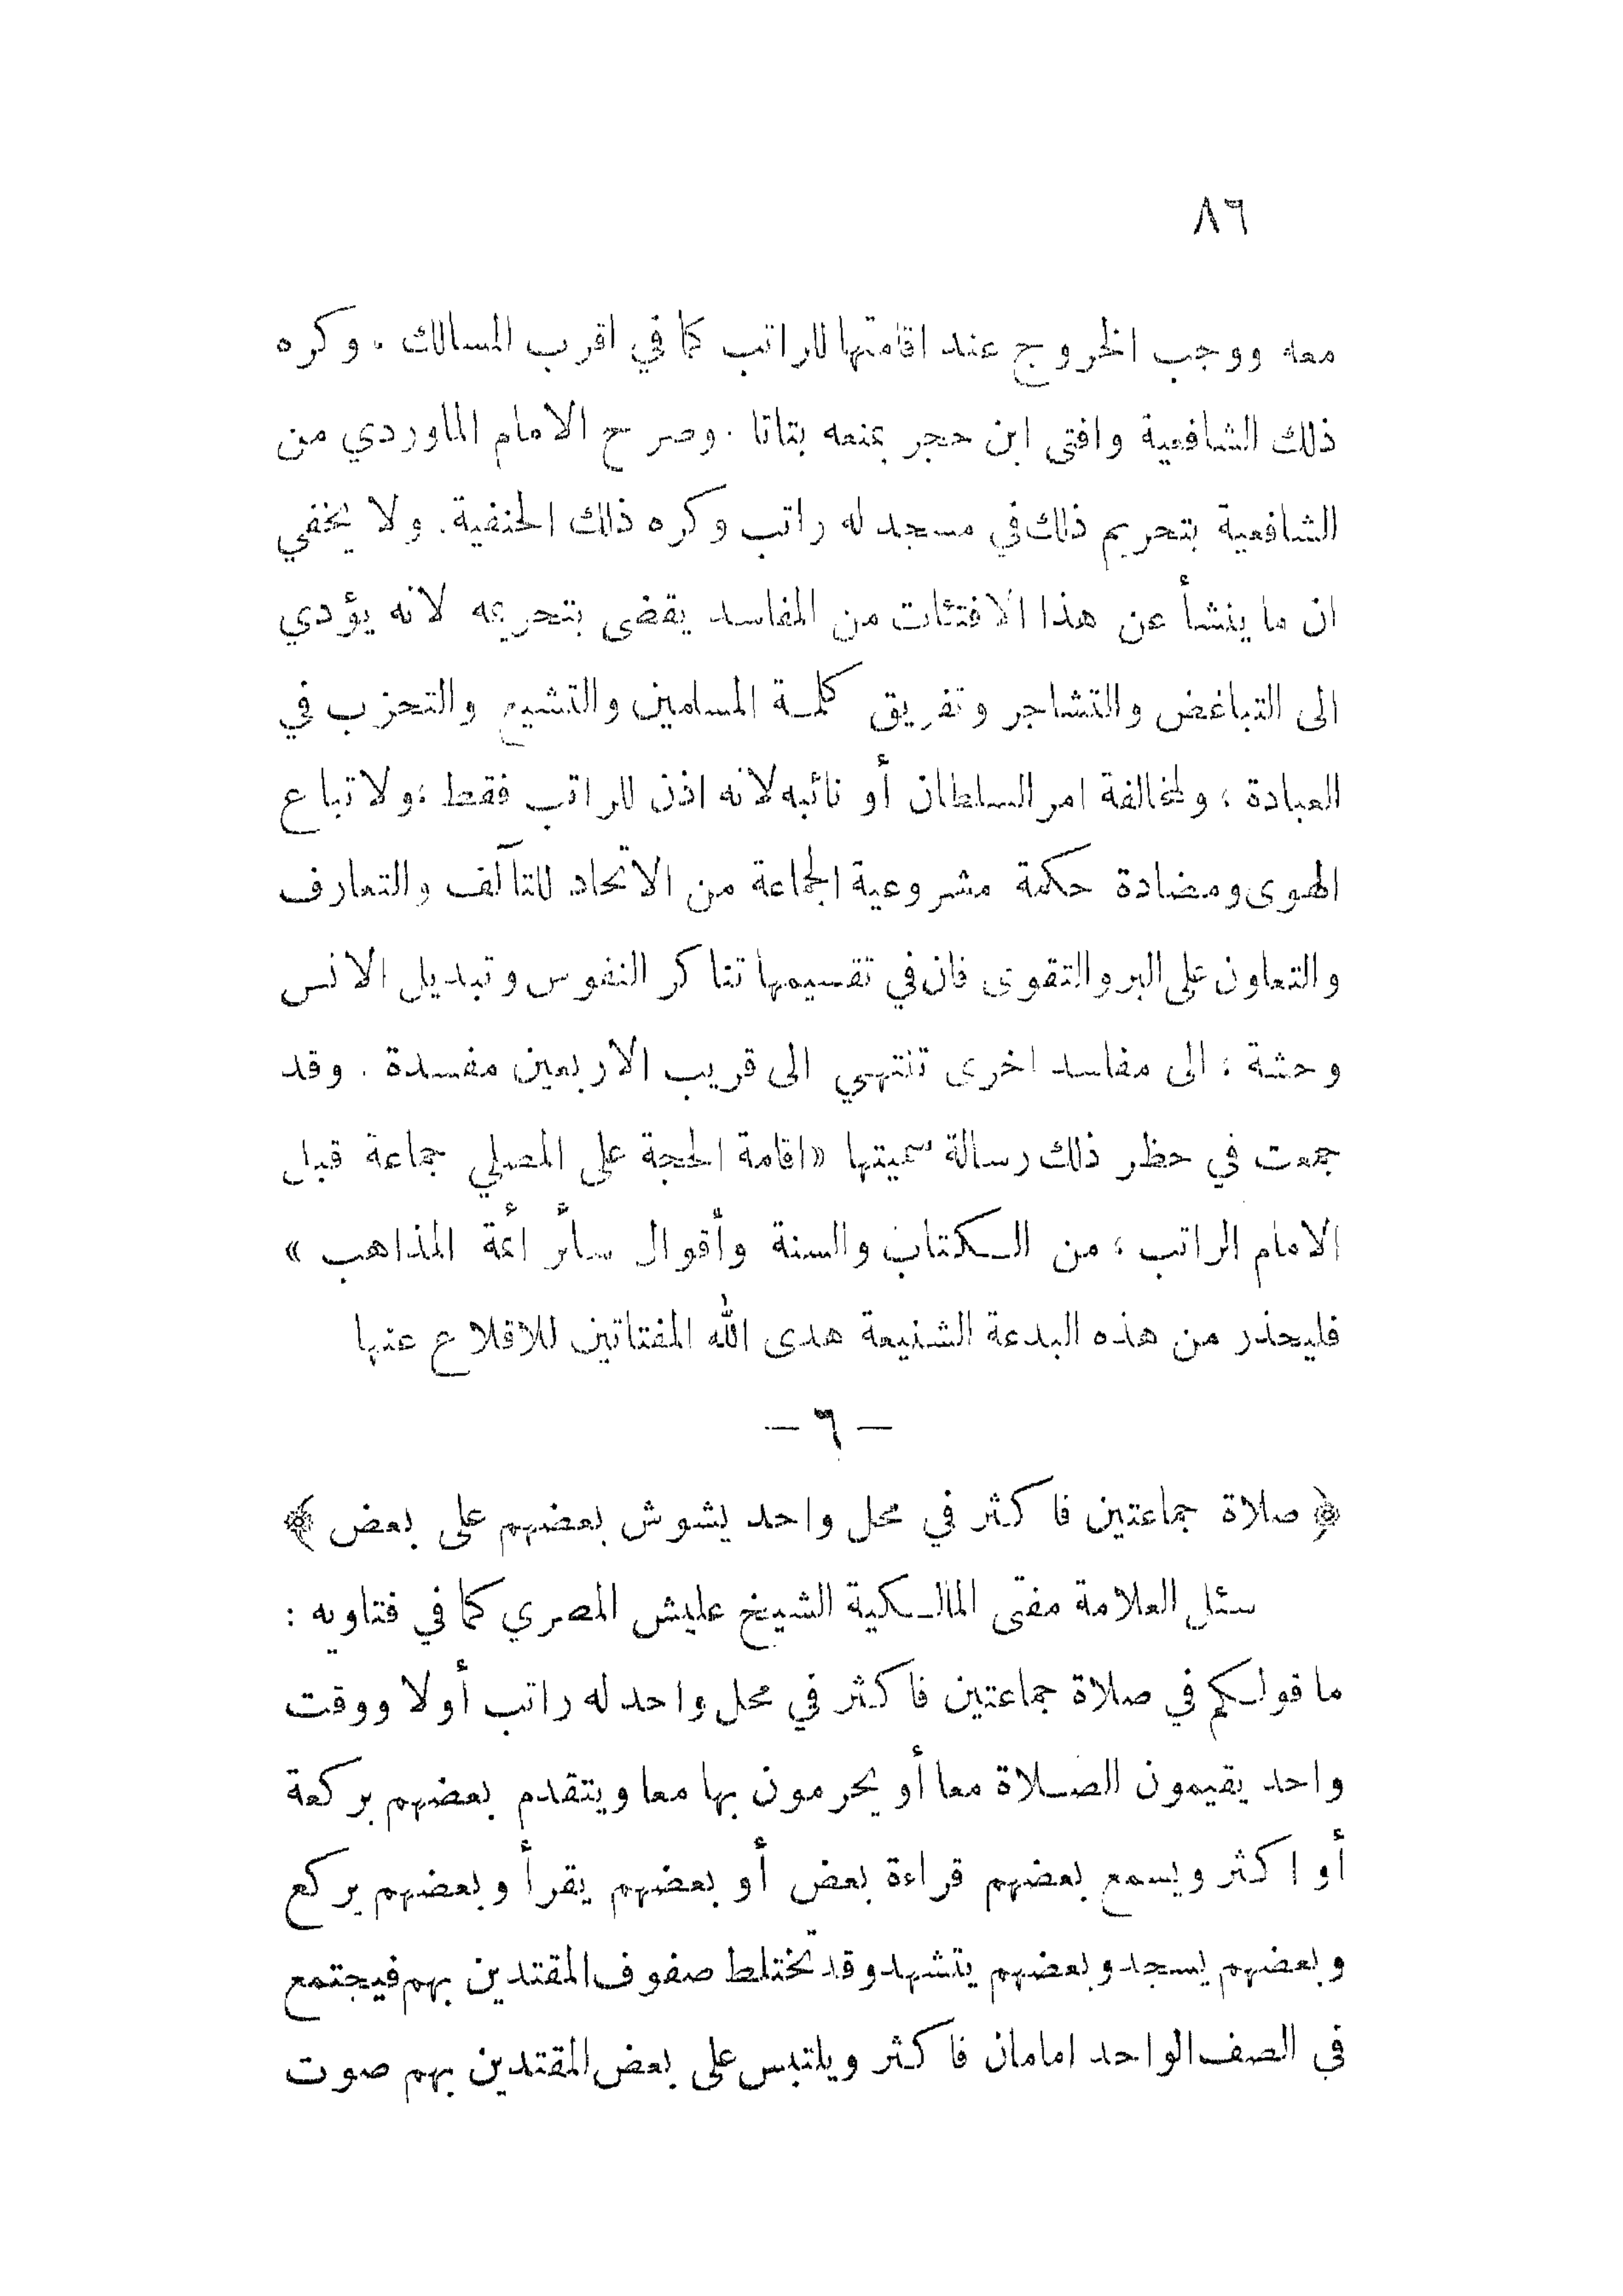 ٨٦
معه ووجب الخروج عند اقامتها للراتب كما في اقرب المسالك . وكره
ذلك الشافعية وافتى ابن حجر بمنعه بتاتا . وصرح الامام الماوردي من
الشافعية بتحريم ذلك في مسجد له راتب وكره ذلك الحنفية . ولا يخفي
ان ما ينشأ عن هذا الافتئات من المفاسد يقضى بتحريمه لانه يؤدي
الى التباغض والتشاجر وتفريق كلمة المسلمين والتشيع والتحزب في
العبادة ، ولمخالفة امر السلطان أو نائبه لانه اذن للراتب فقط ، ولاتباع
الهوى ومضادة حكمة مشروعية الجماعة من الاتحاد للتآلف والتعارف
والتعاون على البر والتقوى فان في تقسيمها تناكر النفوس وتبديل الانس
وحشة ، الى مفاسد اخرى تنتهي الى قريب الاربعين مفسدة . وقد
جمعت في حظر ذلك رسالة سميتها «اقامة الحجة على المصلي جماعة قبل
الامام الراتب ، من الكتاب والسنة وأقوال سائر ائمة المذاهب »
فليحذر من هذه البدعة الشنيعة هدى الله المفتاتين للاقلاع عنها
— ٦ —
﴿ صلاة جماعتين فاكثر في محل واحد يشوش بعضهم على بعض ﴾
سئل العلامة مفتي المالكية الشيخ عليش المصري كما في فتاويه :
ما قولكم في صلاة جماعتين فاكثر في محل واحد له راتب أولا ووقت
واحد يقيمون الصلاة معا أو يحرمون بها معا ويتقدم بعضهم بركعة
أو اكثر ويسمع بعضهم قراءة بعض أو بعضهم يقرأ وبعضهم يركع
وبعضهم يسجد وبعضهم يتشهد وقد تختلط صفوف المقتدين بهم فيجتمع
في الصف الواحد امامان فاكثر ويلتبس على بعض المقتدين بهم صوت